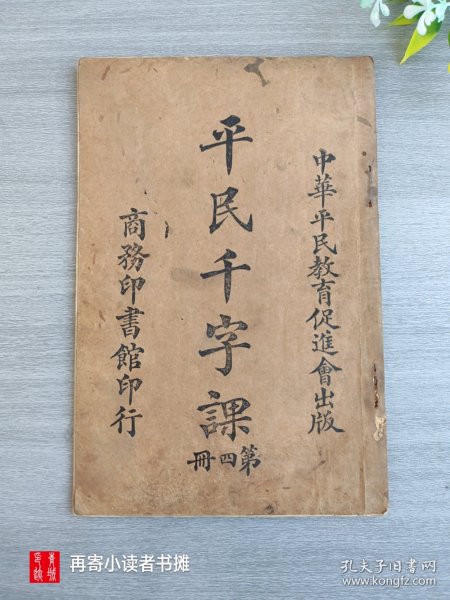 中華平民教育促進會出版
平民千字課
第四冊
商務印書館印行
再寄小读者书摊
孔夫子旧书网
www.kongfz.com